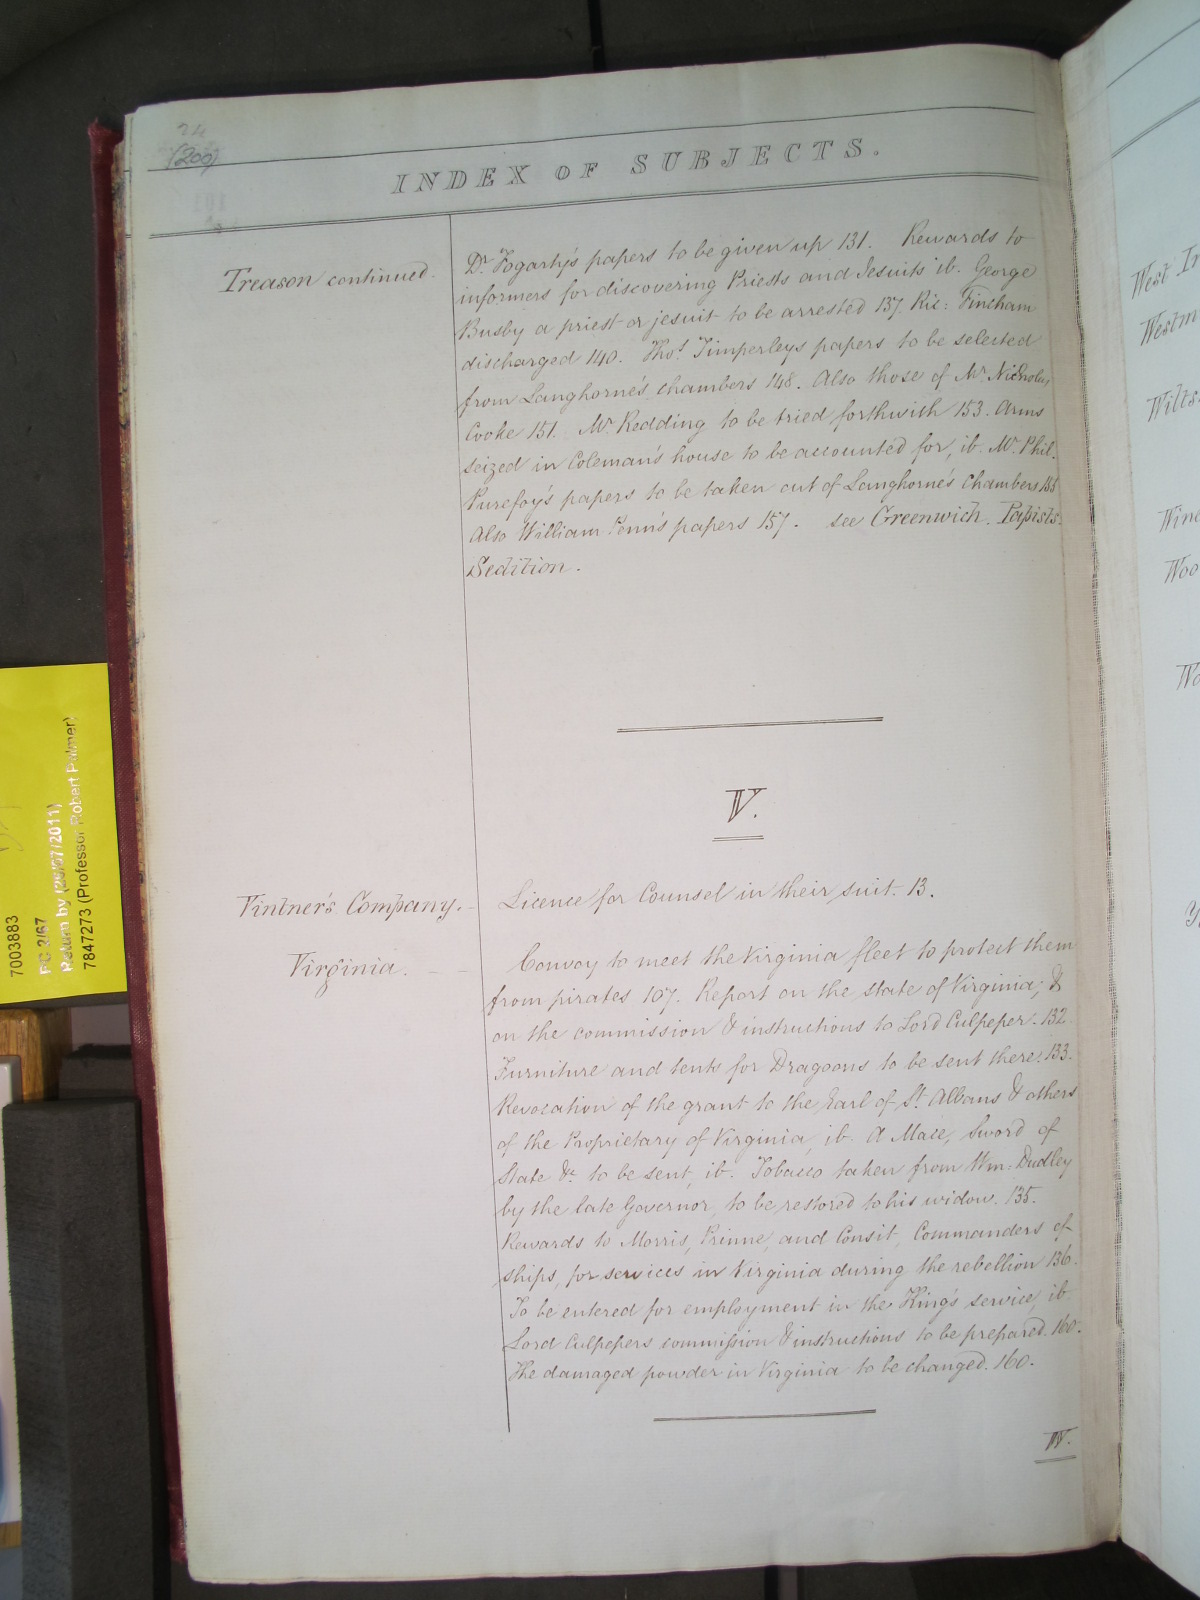 24
(200)
INDEX OF SUBJECTS.
Treason continued.
Dr. Fogarty's papers to be given up 131. Rewards to
informers for discovering Priests and Jesuits ib. George
Busby a priest or jesuit to be arrested 137. Ric: Fincham
discharged 140. Thos. Timperleys papers to be selected
from Langhorne's chambers 148. Also those of Mr. Nicholas
Cooke 151. Mr. Redding to be tried forthwith 153. Arms
seized in Coleman's house to be accounted for, ib. Mr. Phil.
Purefoy's papers to be taken out of Langhorne's Chambers
Also William Penn's papers 157. see Greenwich. Papists.
Sedition.
V.
Vintner's Company.
Licence for Counsel in their suit. 13.
Virginia.
Convoy to meet the Virginia fleet to protect them
from pirates 107. Report on the state of Virginia; &
on the commission & instructions to Lord Culpeper. 132
Furniture and tents for Dragoons to be sent there. 133.
Revocation of the grant to the Earl of St. Albans & others
of the Proprietary of Virginia, ib. A Mace, Sword of
State &c. to be sent, ib. Tobacco taken from Wm: Dudley
by the late Governor, to be restored to his widow. 135.
Rewards to Morris, Prinne, and Consit, Commanders of
ships, for services in Virginia during the rebellion 136.
To be entered for employment in the King's service, ib
Lord Culpepers commission & instructions to be prepared. 160.
The damaged powder in Virginia to be changed. 160.
W.
West In
Westm
Wilts
Wine
Woo
7003883
PC 2/67
Return by (29/07/2011)
7847273 (Professor Robert Palmer)